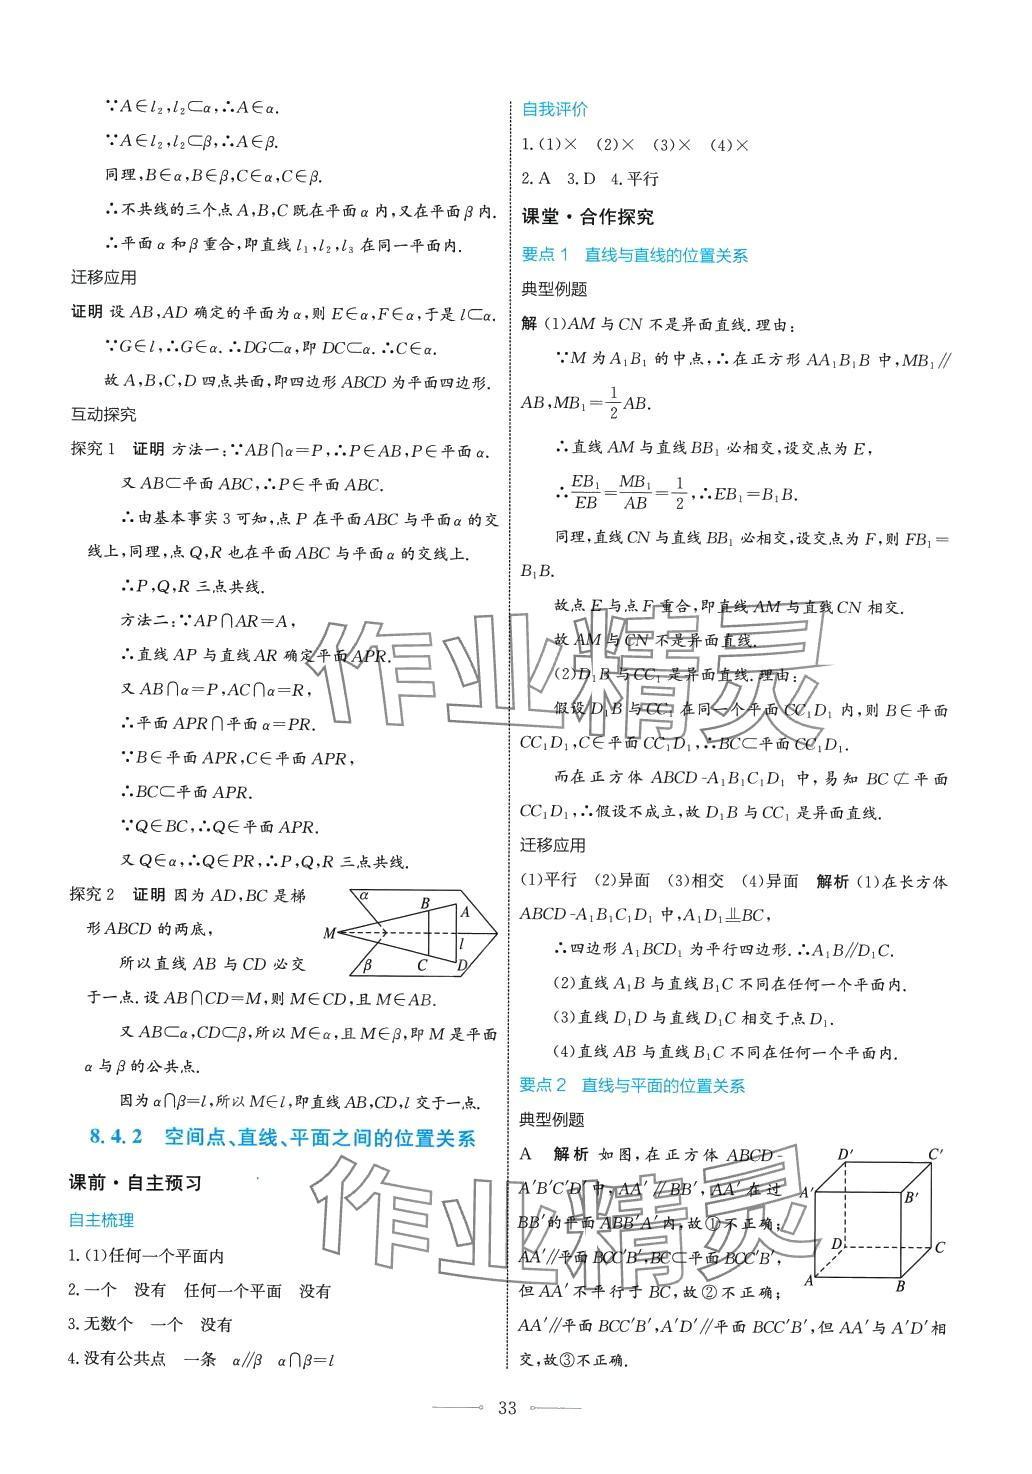 ∵A∈l₂,l₂⊂α,∴A∈α.
∵A∈l₂,l₂⊂β,∴A∈β.
同理,B∈α,B∈β,C∈α,C∈β.
∴不共线的三个点A,B,C既在平面α内,又在平面β内.
∴平面α和β重合,即直线l₁,l₂,l₃在同一平面内.
迁移应用
证明 设AB,AD确定的平面为α,则E∈α,F∈α,于是l⊂α.
∵G∈l,∴G∈α.∴DG⊂α,即DC⊂α.∴C∈α.
故A,B,C,D四点共面,即四边形ABCD为平面四边形.
互动探究
探究1 证明 方法一:∵AB∩α=P,∴P∈AB,P∈平面α.
又AB⊂平面ABC,∴P∈平面ABC.
∴由基本事实3可知,点P在平面ABC与平面α的交
线上,同理,点Q,R也在平面ABC与平面α的交线上.
∴P,Q,R三点共线.
方法二:∵AP∩AR=A,
∴直线AP与直线AR确定平面APR.
又AB∩α=P,AC∩α=R,
∴平面APR∩平面α=PR.
∵B∈平面APR,C∈平面APR,
∴BC⊂平面APR.
∵Q∈BC,∴Q∈平面APR.
又Q∈α,∴Q∈PR,∴P,Q,R三点共线.
探究2 证明 因为AD,BC是梯
形ABCD的两底,
所以直线AB与CD必交
于一点.设AB∩CD=M,则M∈CD,且M∈AB.
α
B
A
M
l
β
C
D
又AB⊂α,CD⊂β,所以M∈α,且M∈β,即M是平面
α与β的公共点.
因为α∩β=l,所以M∈l,即直线AB,CD,l交于一点.
8.4.2 空间点、直线、平面之间的位置关系
课前·自主预习
自主梳理
1.(1)任何一个平面内
2.一个 没有 任何一个平面 没有
3.无数个 一个 没有
4.没有公共点 一条 α∥β α∩β=l
自我评价
1.(1)× (2)× (3)× (4)×
2.A 3.D 4.平行
课堂·合作探究
要点1 直线与直线的位置关系
典型例题
解 (1)AM与CN不是异面直线.理由:
∵M为A₁B₁的中点,∴在正方形AA₁B₁B中,MB₁∥
AB,MB₁=1/2AB.
∴直线AM与直线BB₁必相交,设交点为E,
∴EB₁/EB=MB₁/AB=1/2,∴EB₁=B₁B.
同理,直线CN与直线BB₁必相交,设交点为F,则FB₁=
B₁B.
故点E与点F重合,即直线AM与直线CN相交.
故AM与CN不是异面直线.
(2)D₁B与CC₁是异面直线.理由:
假设D₁B与CC₁在同一个平面CC₁D₁内,则B∈平面
CC₁D₁,C∈平面CC₁D₁,∴BC⊂平面CC₁D₁.
而在正方体ABCD-A₁B₁C₁D₁中,易知BC⊄平面
CC₁D₁,∴假设不成立,故D₁B与CC₁是异面直线.
迁移应用
(1)平行 (2)异面 (3)相交 (4)异面 解析 (1)在长方体
ABCD-A₁B₁C₁D₁中,A₁D₁⫫BC,
∴四边形A₁BCD₁为平行四边形.∴A₁B∥D₁C.
(2)直线A₁B与直线B₁C不同在任何一个平面内.
(3)直线D₁D与直线D₁C相交于点D₁.
(4)直线AB与直线B₁C不同在任何一个平面内.
要点2 直线与平面的位置关系
典型例题
A 解析 如图,在正方体ABCD-
A′B′C′D′中,AA′∥BB′,AA′在过
BB′的平面ABB′A′内,故①不正确;
AA′∥平面BCC′B′,BC⊂平面BCC′B′,
但AA′不平行于BC,故②不正确;
D′
C′
A′
B′
D
C
A
B
AA′∥平面BCC′B′,A′D′∥平面BCC′B′,但AA′与A′D′相
交,故③不正确.
33
作业精灵
作业精灵